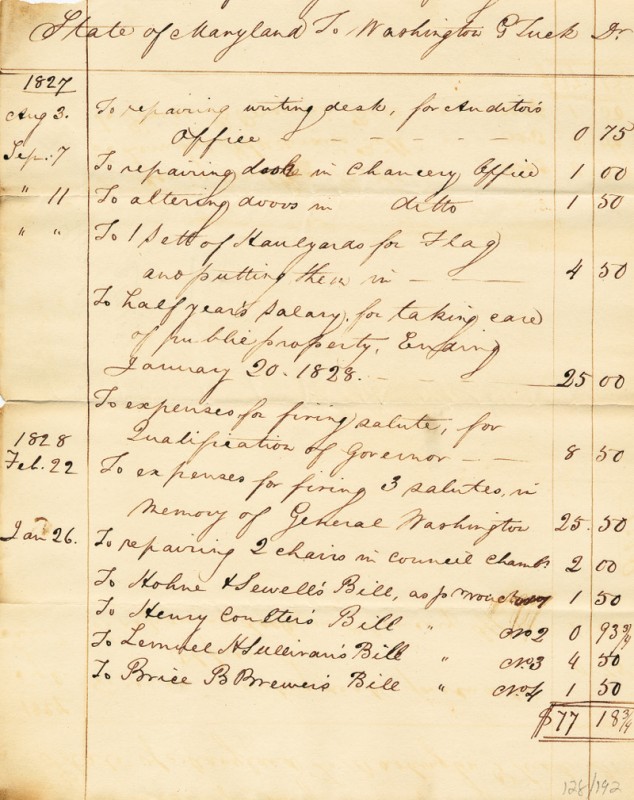 State of Maryland To Washington G Tuck Dr
1827
Aug 3. To repairing writing desk, for Auditor's
Office - - - - - 0 75
Sep. 7 To repairing desk in Chancery Office 1 00
" 11 To altering doors in ditto 1 50
" " To 1 Sett of Haulyards for Flag
and putting them in - - - 4 50
To half year's salary for taking care
of public property, Ending
January 20 - 1828. - - - 25 00
To expenses for firing salute, for
1828
Qualification of Governor - - 8 50
Feb. 22 To expenses for firing 3 salutes, in
Memory of General Washington 25.50
Jan 26. To repairing 2 chairs in Council Chambr 2 00
To Hohne & Sewell's Bill, as pr 1 50
To Henry Coulter's Bill " No 2 0 93 3/4
To Lemuel H Sullivan's Bill " No 3 4 50
To Brice B Brewer's Bill " No 4 1 50
$77 18 3/4
128/192